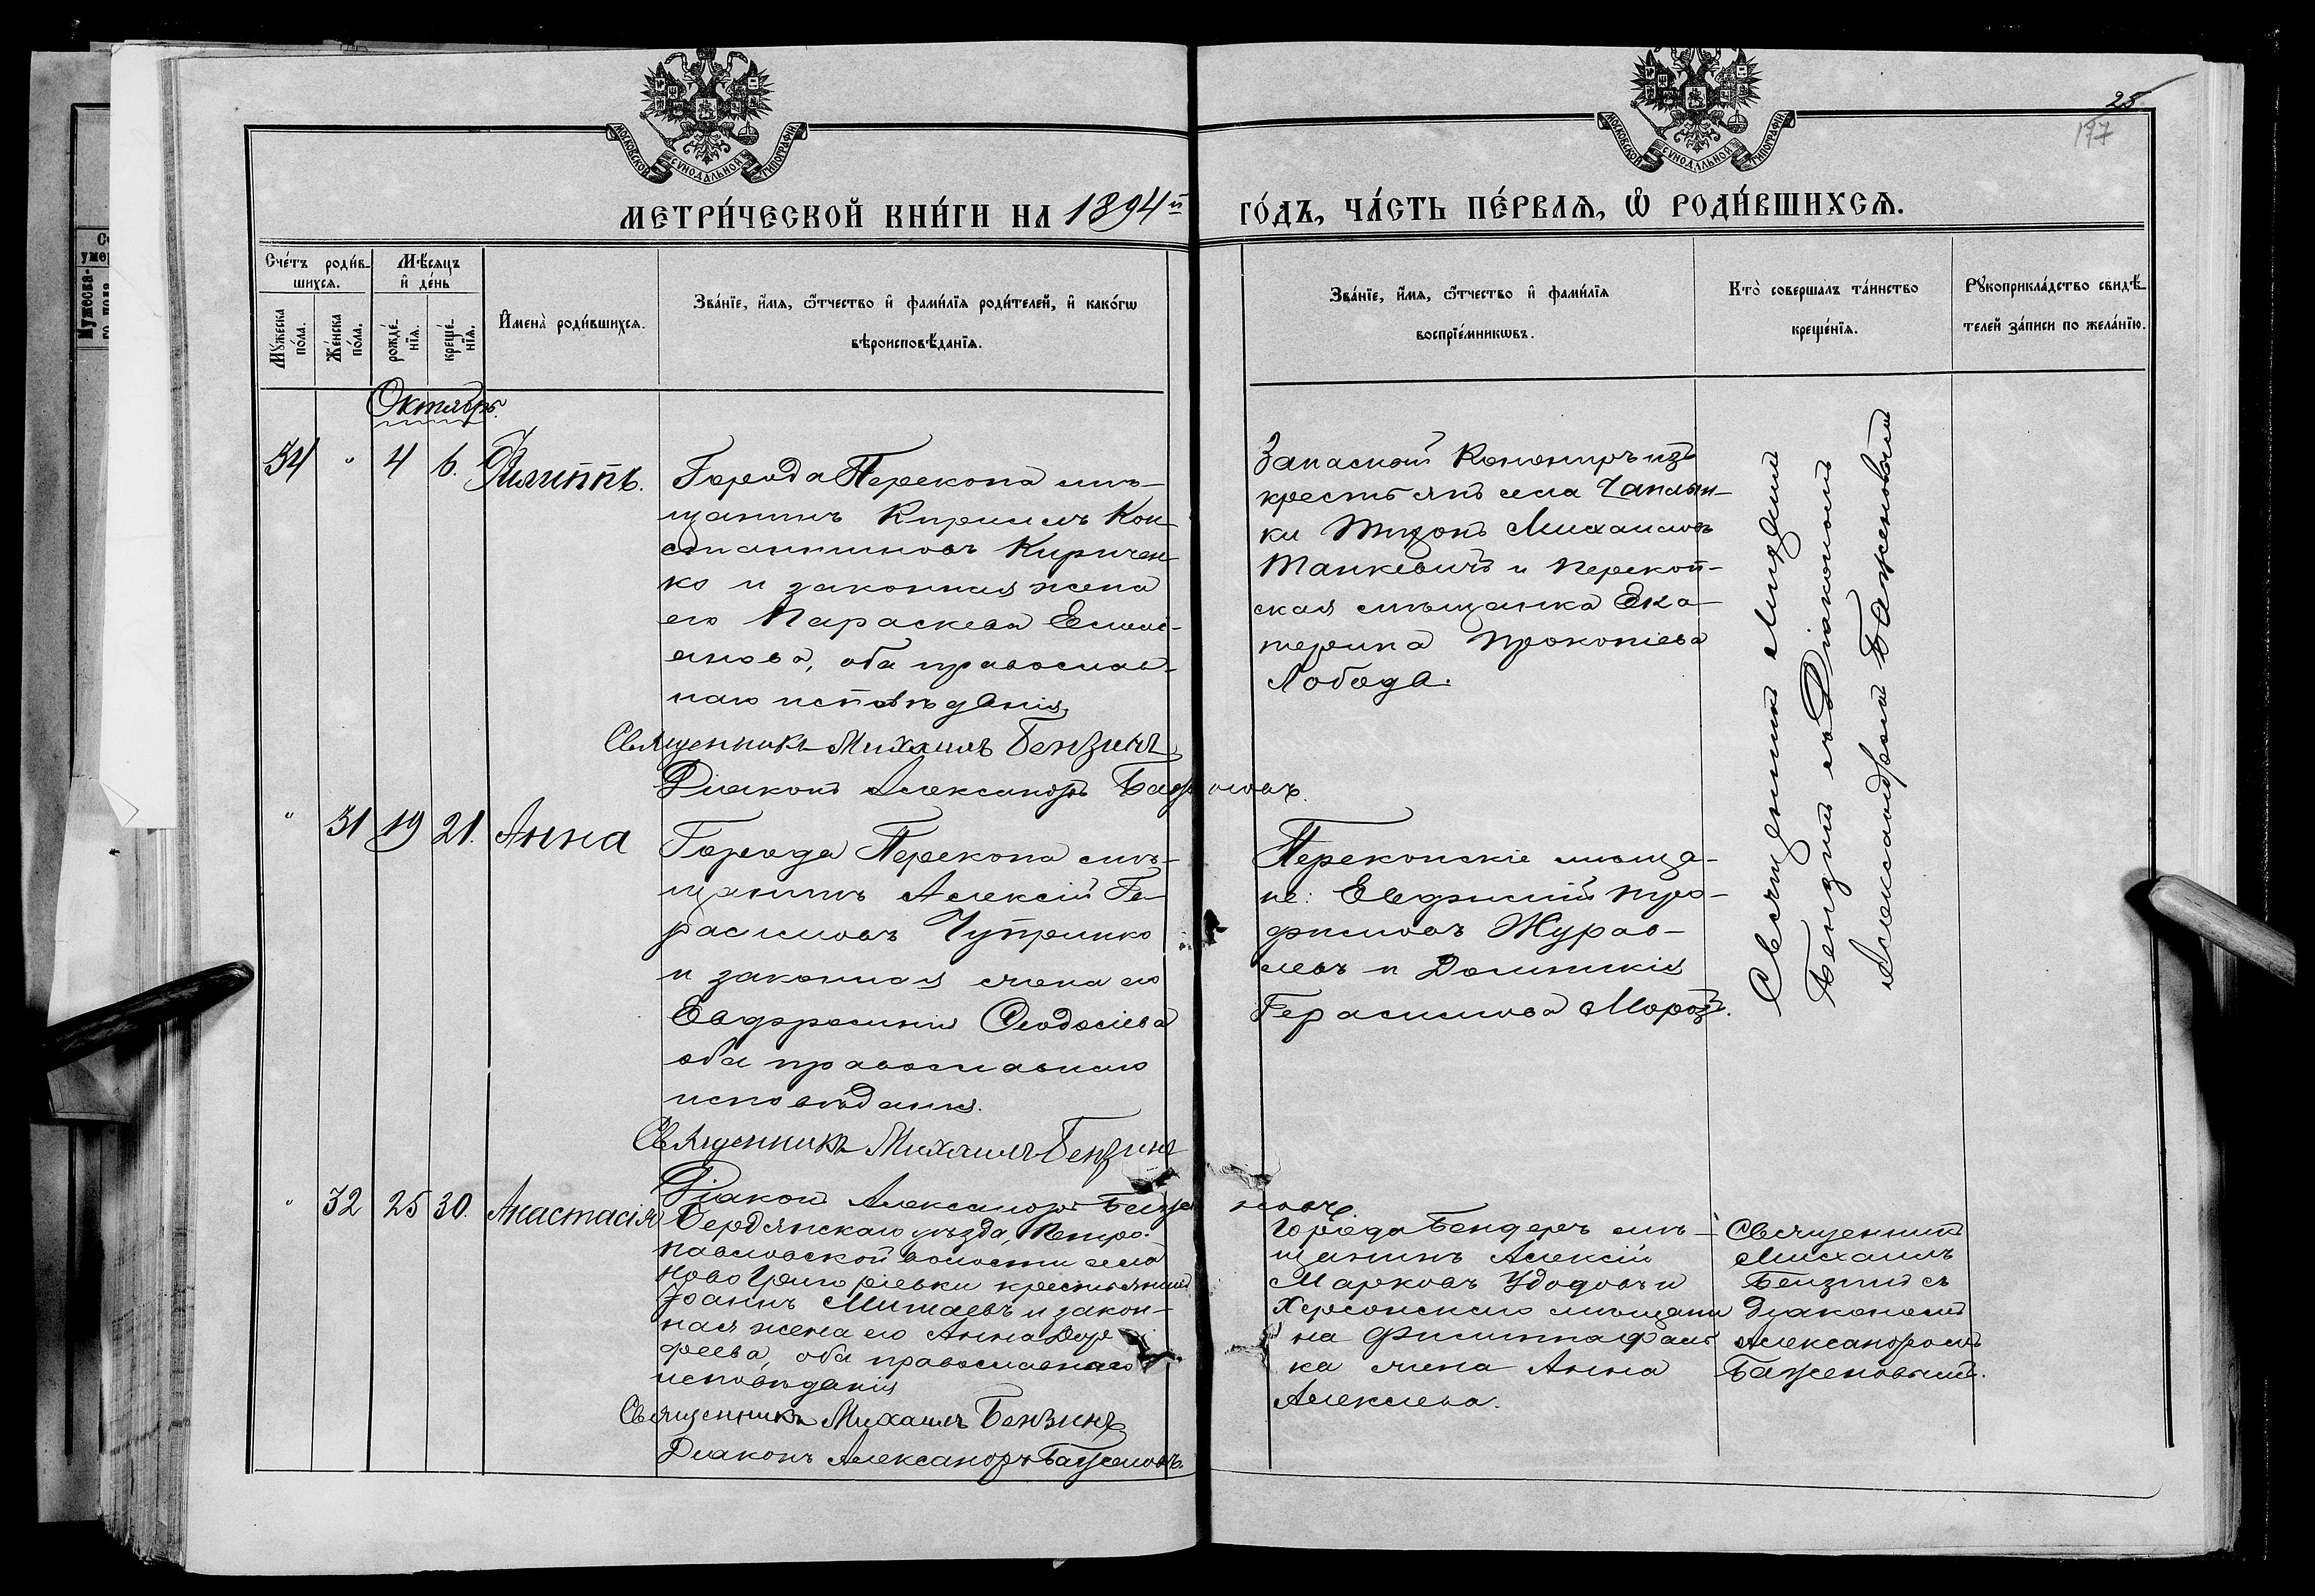 МОСКОВСКОЙ СѴНОДАЛЬНОЙ ТИПОГРАФІИ
МОСКОВСКОЙ СѴНОДАЛЬНОЙ ТИПОГРАФІИ
25
177
МЕТРИ́ЧЕСКОЙ КНИ́ГИ НА 1894й ГО́ДЪ, ЧА́СТЬ ПЕ́РВАЯ, Ѡ РОДИ́ВШИХСЯ.
Сче́тъ роди́в-
шихся.
Мѣ́сяцъ
и де́нь
Мꙋжеска по́ла.
Же́нска по́ла.
рожде́-
нїя.
креще́-
нїя.
Имена̀ роди́вшихся.
Зва́нїе, и́мя, ѻ́тчество и фами́лїя роди́телей, и како́гѡ
вѣроисповѣ́данїя.
Зва́нїе, и́мя, ѻ́тчество и фами́лїя
воспрїе́мникѡвъ.
Кто̀ совершалъ та́инство
креще́нїя.
Рꙋкоприкла́дство свидѣ́-
телей за́писи по жела́нїю.
Октябрь.
34 " 4 6. Филиппъ.
Города Перекопа мѣ-
щанинъ Кириллъ Кон-
стантиновъ Киричен-
ко и законная жена
его Параскева Емилі-
анова, оба православ-
наго исповѣданія,
Священникъ Михаилъ Бензинъ
Діаконъ Александръ Баженовъ.
Запасной Канониръ изъ
крестьянъ села Чаплин-
ки Тихонъ Михаиловъ
Танкевичъ и Перекоп-
ская мѣщанка Ека-
терина Прокопіева
Лобода.
Священникъ Михаилъ
Бензинъ съ Діакономъ
Александромъ Баженовымъ
" 31 19 21. Анна
Города Перекопа мѣ-
щанинъ Алексій Ге-
расимовъ Чупринко
и законная жена его
Евфросинія Ѳеодосіева
оба православнаго
исповѣданія.
Священникъ Михаилъ Бензинъ
Діаконъ Александръ Баженовъ
Перекопскіе мѣща-
не: Евфимій Тро-
фимовъ Журав-
левъ и Домникія
Герасимова Морозъ.
" 32 25 30. Анастасія
Бердянскаго уѣзда, Петро-
павловской волости села
Ново Григоріевки крестьянинъ
Іоаннъ Митаевъ и закон-
ная жена его Анна Доро
феева, оба православнаго
исповѣданія
Священникъ Михаилъ Бензинъ
Діаконъ Александръ Баженовъ.
Города Бендеръ мѣ-
щанинъ Алексій
Марковъ Удодовъ и
Херсонскаго мѣщани
на Филиппа Фаль
ка жена Анна
Алексіева.
Священникъ
Михаилъ
Бензинъ съ
Діакономъ
Александромъ
Баженовымъ.